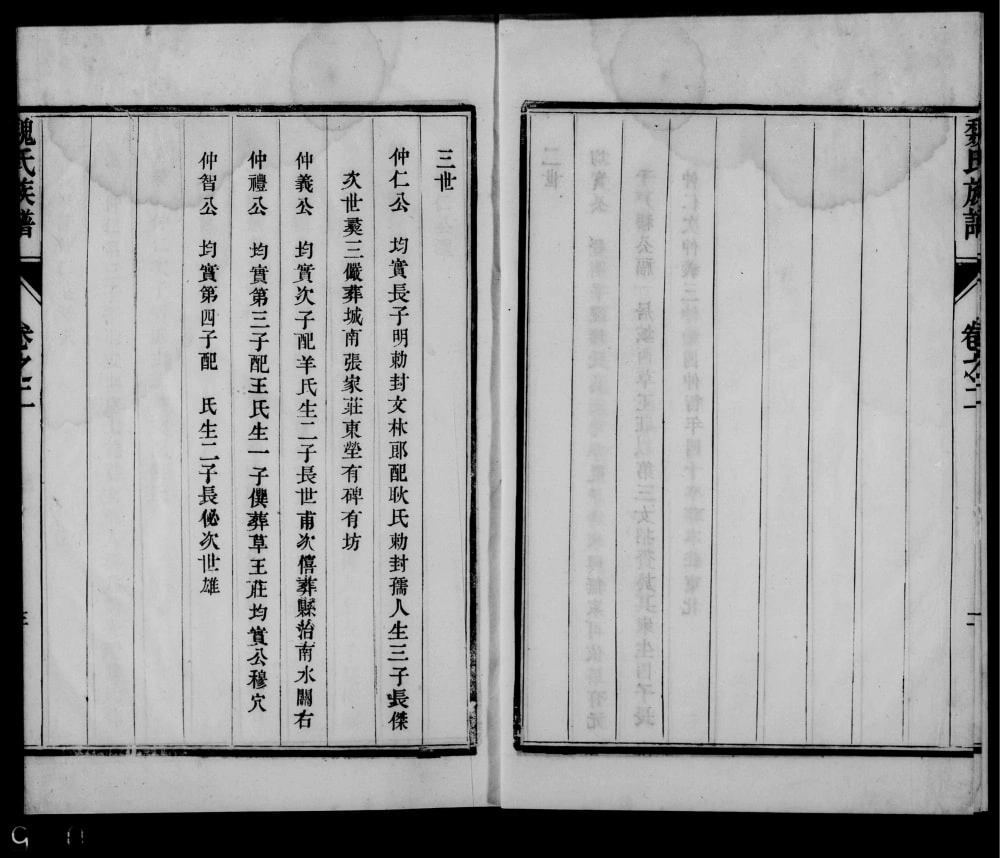 魏氏族譜
卷之二
二
三世
仲仁公　均實長子明勅封文林郎配耿氏勅封孺人生三子長傑
次世爽三儼葬城南張家莊東塋有碑有坊
仲義公　均實次子配羊氏生二子長世甫次僖葬縣治南水關右
仲禮公　均實第三子配王氏生一子僕葬草王莊均實公穆穴
仲智公　均實第四子配　氏生二子長佖次世雄
魏氏族譜
卷之二
三